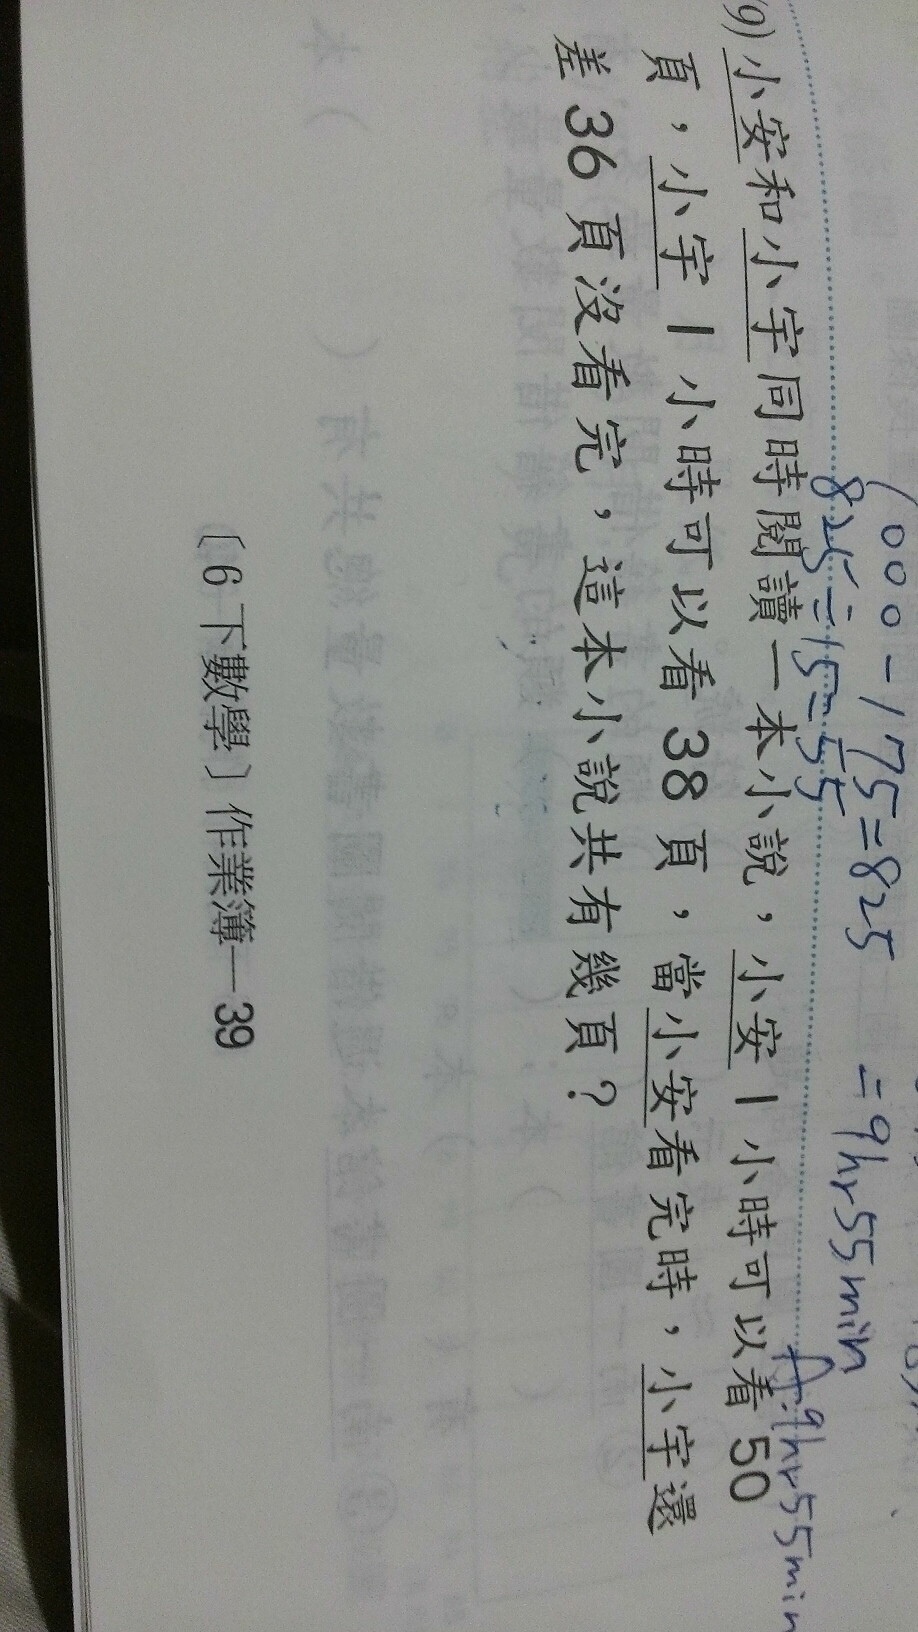 1000-175=825
=9hr55min
825÷15=55
A:9hr55min
9)小安和小宇同時閱讀一本小說，小安1小時可以看50
頁，小宇1小時可以看38頁，當小安看完時，小宇還
差36頁沒看完，這本小說共有幾頁？
〔6下數學〕作業簿—39